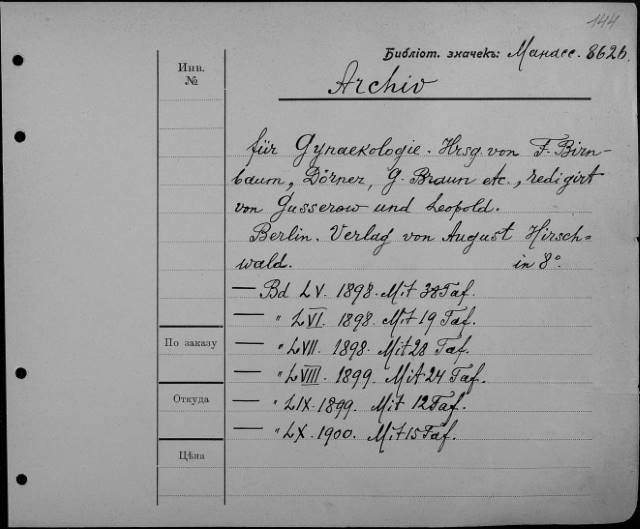 144
Библіот. значекъ: Манасс. 862б.
Инв.
№
Archiv
für Gynaekologie. Hrsg. von F. Birn-
baum, Dörner, G. Braun etc., redigirt
von Gusserow und Leopold.
Berlin. Verlag von August Hirsch=
wald. in 8°.
— Bd LV. 1898. Mit 38 Taf.
— " LVI. 1898. Mit 19 Taf.
По заказу
— " LVII. 1898. Mit 28 Taf.
— " LVIII. 1899. Mit 24 Taf.
Откуда
— " LIX. 1899. Mit 12 Taf.
— " LX. 1900. Mit 15 Taf.
Цѣна